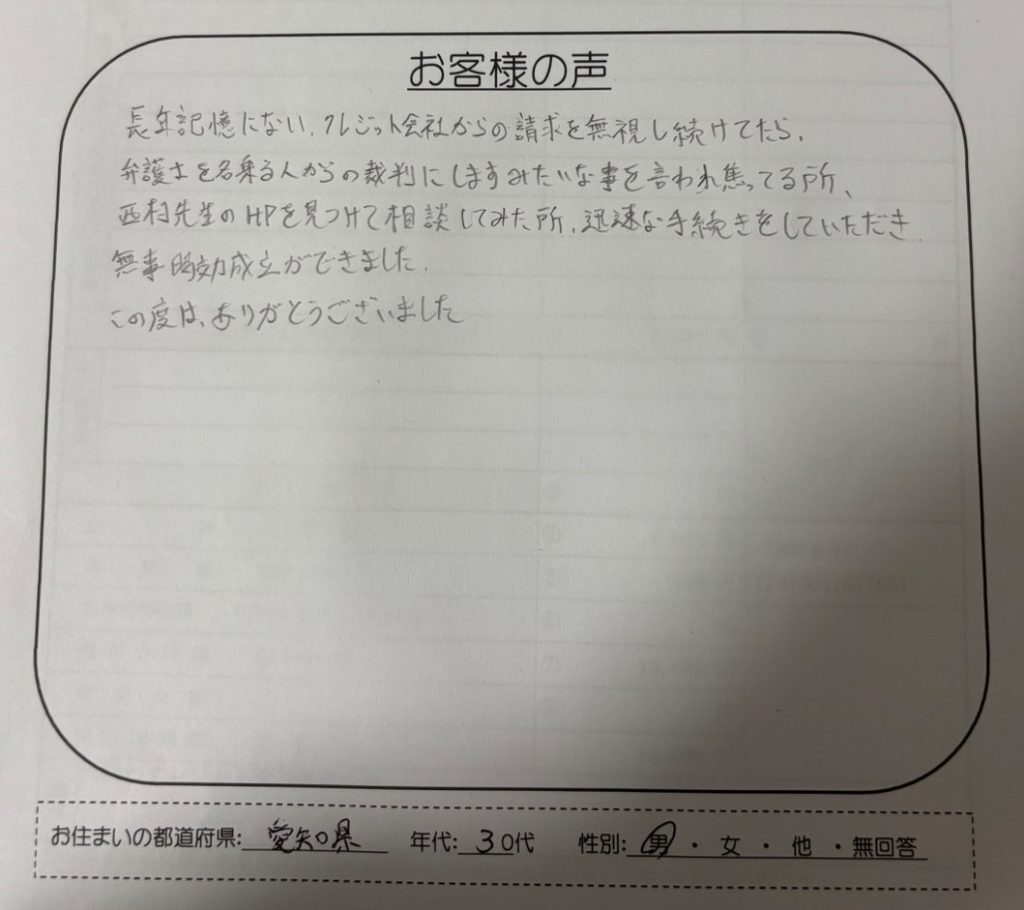 お客様の声
長年記憶にない、クレジット会社からの請求を無視し続けてたら、
弁護士を名乗る人からの裁判にしますみたいな事を言われ焦ってる所、
西村先生のHPを見つけて相談してみた所、迅速な手続きをしていただき
無事時効成立ができました。
この度は、ありがとうございました
お住まいの都道府県: 愛知県 年代: 30代 性別: 男 ・ 女 ・ 他 ・ 無回答